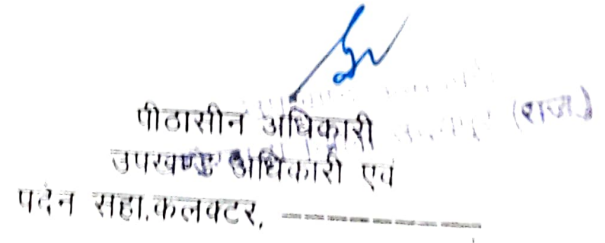 पीठासीन अधिकारी
(राज.)
उपखण्ड अधिकारी एवं
पदेन सहा.कलक्टर,